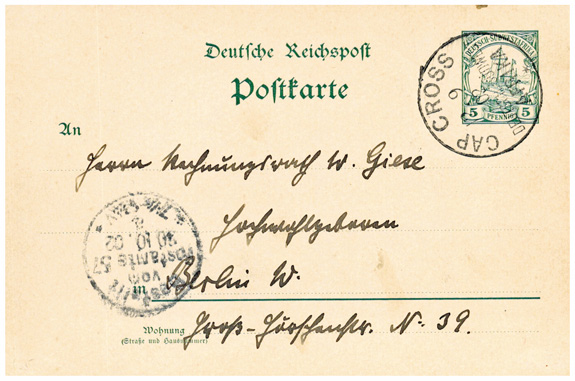 Deutsche Reichspost
Postkarte
DEUTSCH-SÜDWESTAFRIKA
5 PFENNIG 5
CAP CROSS
An
Herrn Rechnungsrath W. Giese
Hochwohlgeboren
in Berlin W.
Wohnung
(Straße und Hausnummer)
Groß-Görschenstr. N: 39.
Bestellt
vom
Postamte 57
30.10.02